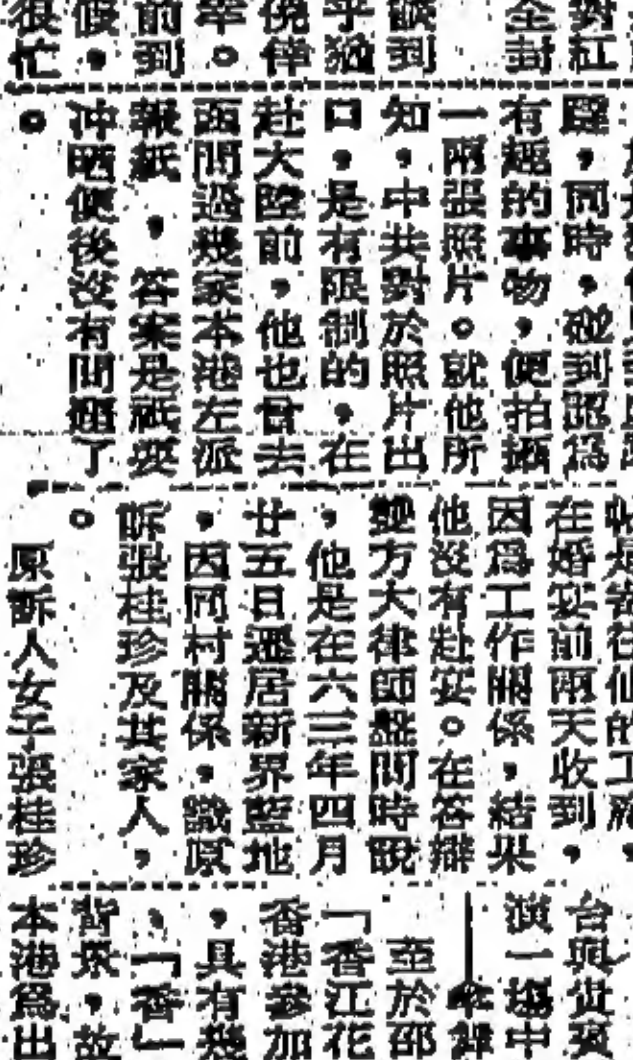 對紅
全封
歡到
乎猶
僥倖
率。
前到
假，
很忙
題，同時，碰到認爲
有趣的事物，便拍攝
一兩張照片。就他所
知，中共對於照片出
口，是有限制的，在
赴大陸前，他也曾去
函問過幾家本港左派
報紙，答案是祇要
沖晒便後沒有問題了
。
帖是寄往仙的工廠，
在婚宴前兩天收到，
因爲工作關係，結果
他沒有赴宴。在答辯
雙方大律師盤問時說
，他是在六三年四月
廿五日遷居新界藍地
，因同村關係，識原
訴張桂珍及其家人，
。
原訴人女子張桂珍
台與
演一場中
至於邵
「香江花
香港參加
，具有幾
、「香」
背景，故
本港爲出